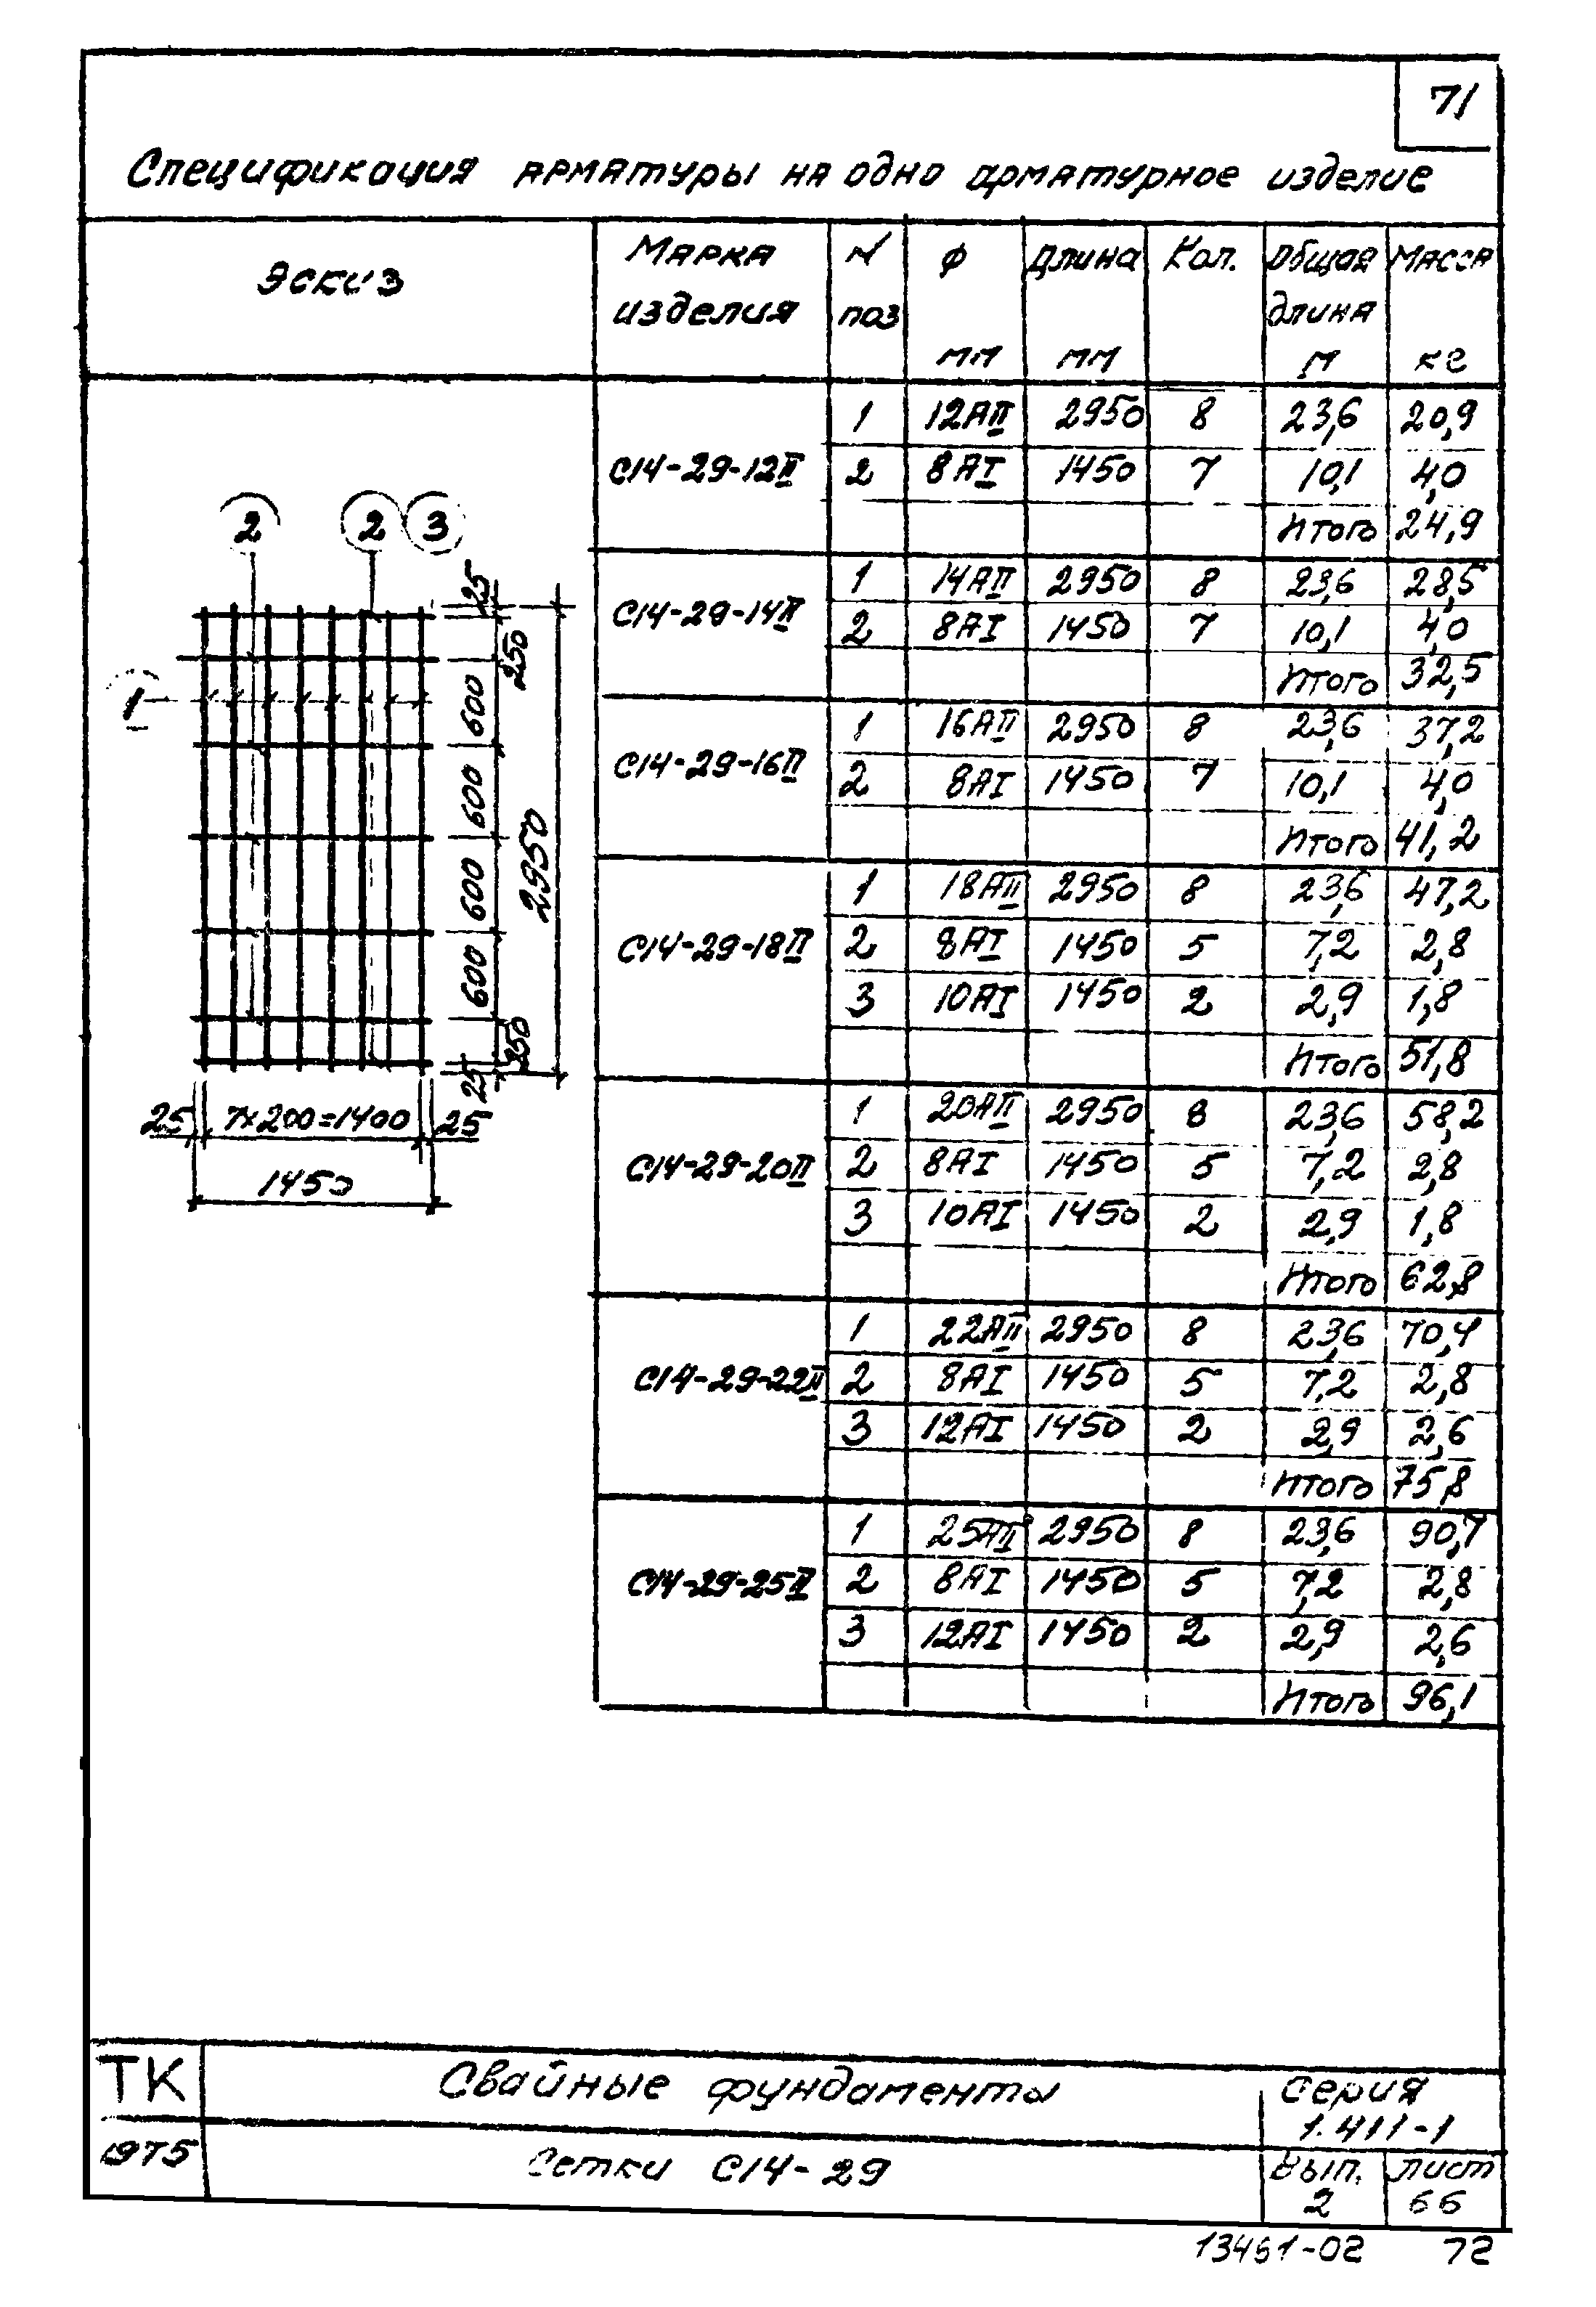 71
Спецификация арматуры на одно арматурное изделие
Эскиз
Марка изделия | N поз | Ф мм | Длина мм | Кол. | Общая длина м | Масса кг
С14-29-12II
1 12АII 2950 8 23,6 20,9
2 8АI 1450 7 10,1 4,0
Итого 24,9
С14-29-14II
1 14АII 2950 8 23,6 28,5
2 8АI 1450 7 10,1 4,0
Итого 32,5
С14-29-16II
1 16АII 2950 8 23,6 37,2
2 8АI 1450 7 10,1 4,0
Итого 41,2
С14-29-18II
1 18АII 2950 8 23,6 47,2
2 8АI 1450 5 7,2 2,8
3 10АI 1450 2 2,9 1,8
Итого 51,8
С14-29-20II
1 20АII 2950 8 23,6 58,2
2 8АI 1450 5 7,2 2,8
3 10АI 1450 2 2,9 1,8
Итого 62,8
С14-29-22II
1 22АII 2950 8 23,6 70,4
2 8АI 1450 5 7,2 2,8
3 12АI 1450 2 2,9 2,6
Итого 75,8
С14-29-25II
1 25АII 2950 8 23,6 90,7
2 8АI 1450 5 7,2 2,8
3 12АI 1450 2 2,9 2,6
Итого 96,1
2 2 3
1
25
250
600
600
600
600
250
25
2950
25 7×200=1400 25
1450
ТК
1975
Свайные фундаменты
Сетки С14-29
Серия
1.411-1
Вып. Лист
2 66
13461-02 72